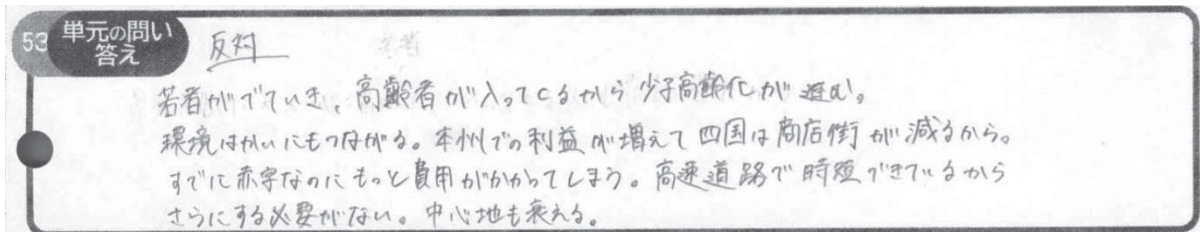 53 単元の問い 答え
反対
若者がでていき、高齢者が入ってくるから少子高齢化が進む。
環境はかいにもつながる。本州での利益が増えて四国は商店街が減るから。
すでに赤字なのにもっと費用がかかってしまう。高速道路で時短できているから
さらにする必要がない。中心地も衰える。